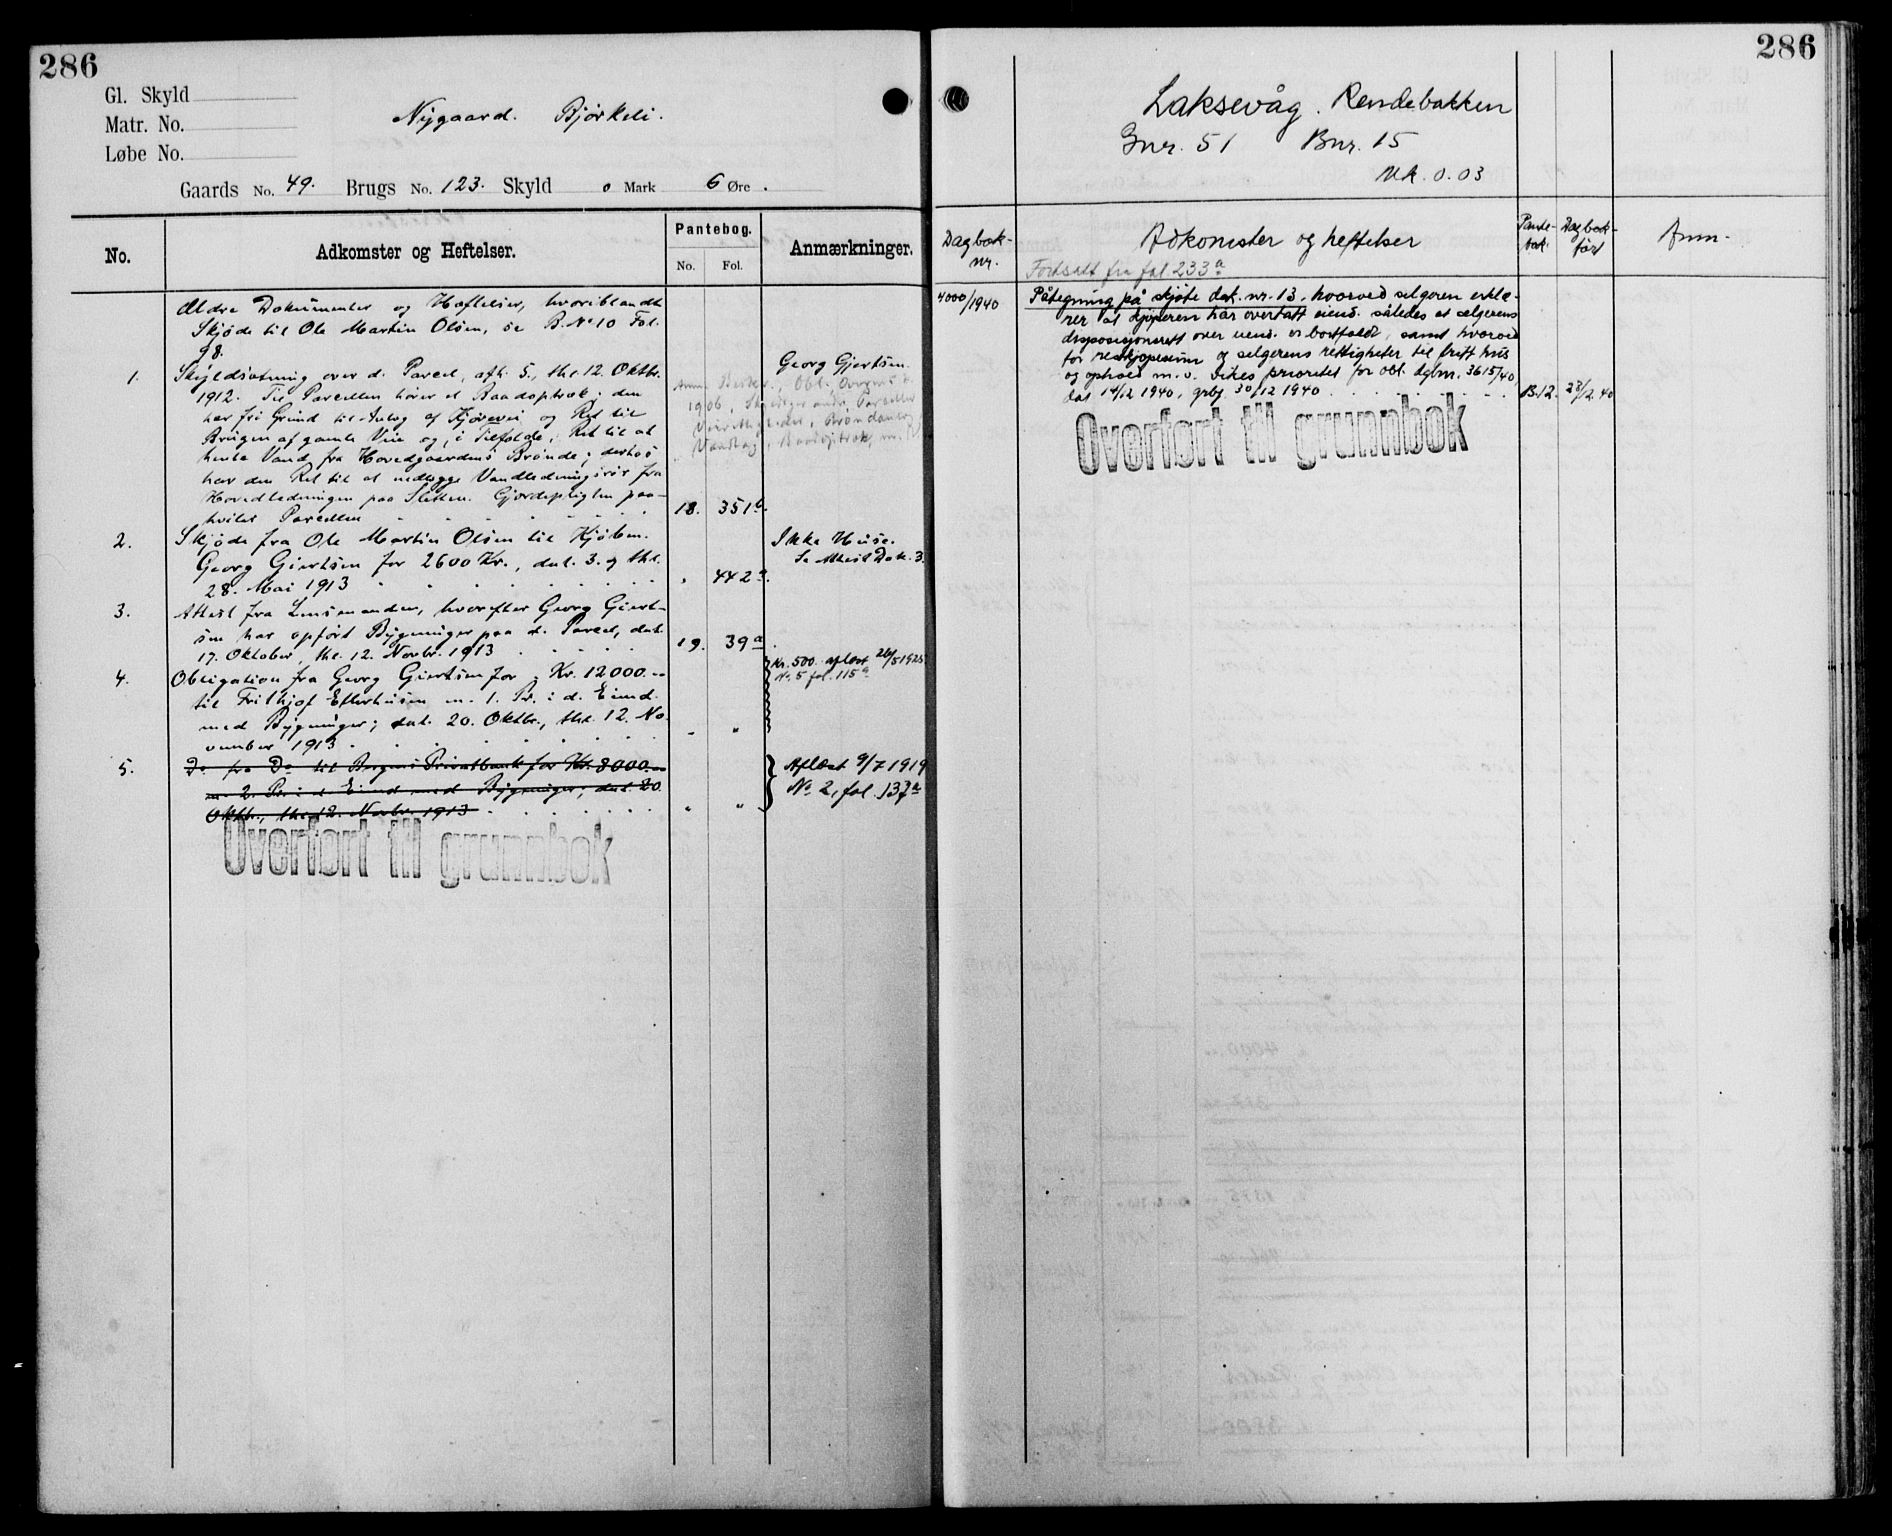 286
Gl. Skyld
Matr. No.
Løbe No.
Nygaard. Bjørkeli.
Gaards No. 49. Brugs No. 123. Skyld 0 Mark 6 Øre.
No. Adkomster og Heftelser. Pantebog. Anmærkninger.
No. Fol.
Ældre Dokumenter og Heftelser, hvoriblandt
Skjøde til Ole Martin Olsen, se B. No 10 Fol.
98.
1. Skyldsætning over d. Parcel, afh. 5., thl. 12. Oktbr. Georg Gjertsen.
1912. Til Parcellen hører et Baadoptræk; den
har fri Grund til Anlæg af Kjørevei og Ret til
Brugen af gamle Veie og, i Tilfælde, Ret til at
hente Vand fra Hovedgaardens Brønde; derhos
har den Ret til at nedlægge Vandledningsrør fra
Hovedledningen paa Sletten. Gjerdepligten paa-
hviler Parcellen 18. 351b.
Anm. Obl.
1906, andr. Parceller
Brøndanlæg
Baadoptræk, m.
2. Skjøde fra Ole Martin Olsen til Kjøbm. Ikke Huse.
Georg Giertsen for 2600 Kr., dat. 3. og thl. Se Attest Dok. 3.
28. Mai 1913 " 442a.
3. Attest fra Lensmanden, hvorefter Georg Giert-
sen har opført Bygninger paa d. Parcel, dat.
17. Oktober, thl. 12. Novbr. 1913 19. 39a.
4. Obligation fra Georg Giertsen for Kr. 12000.-- Kr. 500. aflæst 26/5 1925
til Frithjof Ellerhusen m. 1. Pr. i d. Eiend. No. 5 fol. 115a
med Bygninger; dat. 20. Oktbr., thl. 12. No-
vember 1913 " "
5. Do fra Do til Bergens Privatbank for Kr. 8000.-- Aflæst 9/7 1919
m. 2. Pr. i d. Eiend. med Bygninger; dat. 20. No 2, fol. 137a
Oktbr., thl. 12. Novbr. 1913 " "
Overført til grunnbok
286
Laksevåg. Rendebakken
Gnr. 51 Bnr. 15
Mk. 0.03
Dagbok-nr. Adkomster og heftelser Pante-bok. Dagbok-ført Anm.
Fortsatt fra fol 233a
4000/1940 Påtegning på skjøte dok. nr. 13, hvorved selgeren erklæ-
rer at kjøperen har overtatt eiend. således at selgerens
disposisjonsrett over eiend. er bortfaldt, samt hvorved
for restkjøpesum og selgerens rettigheter til fritt hus
og ophold m.v. vikes prioritet for obl. dgbnr. 3615/40,
dat 14/12 1940, grbg. 30/12 1940 B.12. 23/12 40
Overført til grunnbok